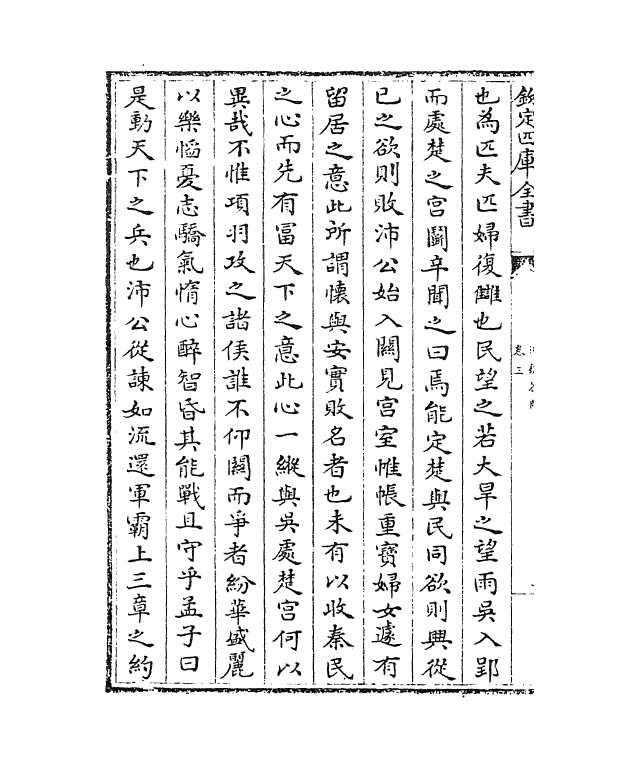 欽定四庫全書
卷三
也為匹夫匹婦復讎也民望之若大旱之望雨吳入郢
而處楚之宮鬬辛聞之曰焉能定楚與民同欲則興從
已之欲則敗沛公始入關見宮室帷帳重寳婦女遽有
留居之意此所謂懐與安實敗名者也未有以收秦民
之心而先有冨天下之意此心一縱與吳處楚宮何以
異哉不惟項羽攻之諸侯誰不仰關而爭者紛華盛麗
以樂慆憂志驕氣惰心醉智昏其能戰且守乎孟子曰
是動天下之兵也沛公從諫如流還軍霸上三章之約